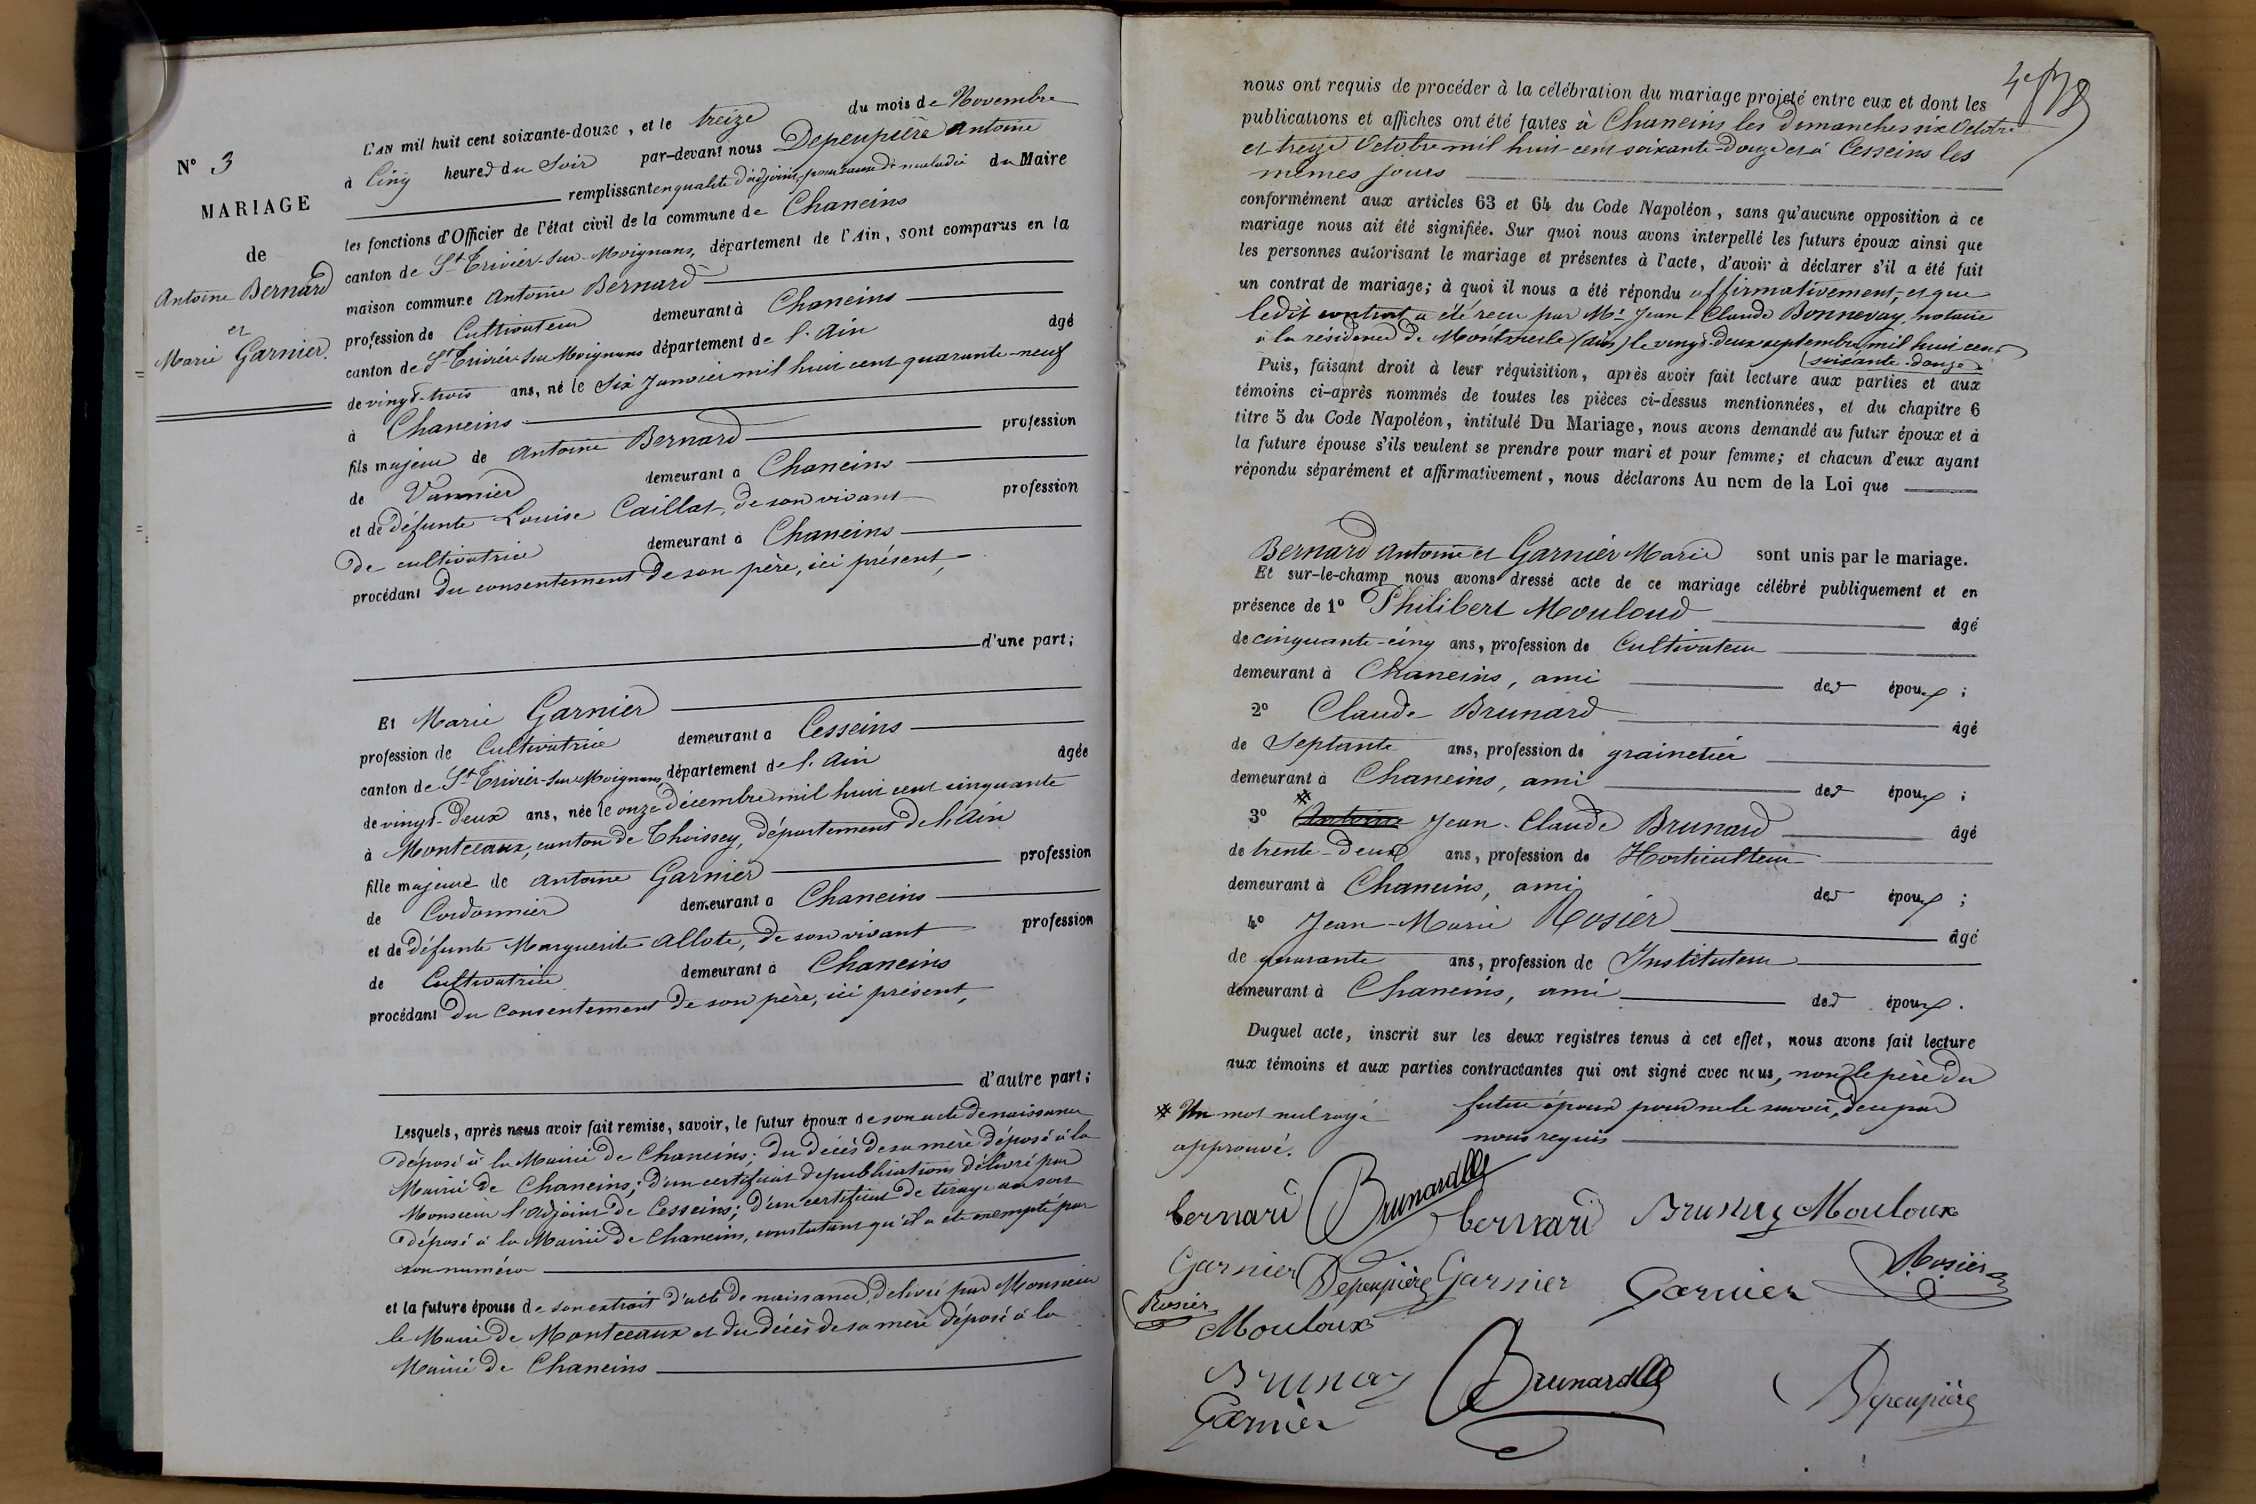 N° 3
MARIAGE
de
Antoine Bernard
et
Marie Garnier.
L'AN mil huit cent soixante-douze, et le treize du mois de Novembre
à Cinq heures du Soir par-devant nous Depeupière Antoine
remplissant en qualité d'adjoint, pour cause de maladie du Maire
les fonctions d'Officier de l'état civil de la commune de Chaneins
canton de St Trivier-sur-Moignans, département de l'Ain, sont comparus en la
maison commune Antoine Bernard
profession de Cultivateur demeurant à Chaneins
canton de St Trivier-sur-Moignans département de l'Ain âgé
de vingt-trois ans, né le Six Janvier mil huit cent quarante-neuf
à Chaneins
fils majeur de Antoine Bernard profession
de Vannier demeurant à Chaneins
et de défunte Louise Caillat, de son vivant profession
de cultivatrice demeurant à Chaneins
procédant du consentement de son père, ici présent,
d'une part;
Et Marie Garnier
profession de Cultivatrice demeurant à Cesseins
canton de St Trivier-sur-Moignans département de l'Ain âgée
de vingt-deux ans, née le onze décembre mil huit cent cinquante
à Montceaux, canton de Thoissey, département de l'Ain
fille majeure de Antoine Garnier profession
de Cordonnier demeurant à Chaneins
et de défunte Marguerite Allote, de son vivant profession
de Cultivatrice demeurant à Chaneins
procédant du consentement de son père, ici présent,
d'autre part;
Lesquels, après nous avoir fait remise, savoir, le futur époux de son acte de naissance
déposé à la Mairie de Chaneins; du décès de sa mère déposé à la
Mairie de Chaneins; d'un certificat de publications délivré par
Monsieur l'adjoint de Cesseins; d'un certificat de tirage au sort
déposé à la Mairie de Chaneins, constatant qu'il a été exempté par
son numéro
et la future épouse de son extrait d'acte de naissance, délivré par Monsieur
le Maire de Montceaux et du décès de sa mère déposé à la
Mairie de Chaneins
nous ont requis de procéder à la célébration du mariage projeté entre eux et dont les
publications et affiches ont été faites à Chaneins les dimanches six Octobre
et treize Octobre mil huit cent soixante-douze et à Cesseins les
mêmes jours
conformément aux articles 63 et 64 du Code Napoléon, sans qu'aucune opposition à ce
mariage nous ait été signifiée. Sur quoi nous avons interpellé les futurs époux ainsi que
les personnes autorisant le mariage et présentes à l'acte, d'avoir à déclarer s'il a été fait
un contrat de mariage; à quoi il nous a été répondu affirmativement, et que
ledit contrat a été reçu par Mr Jean Claude Bonnevay, notaire
à la résidence de Montmerle (Ain) le vingt-deux septembre mil huit cent
soixante-douze
Puis, faisant droit à leur réquisition, après avoir fait lecture aux parties et aux
témoins ci-après nommés de toutes les pièces ci-dessus mentionnées, et du chapitre 6
titre 5 du Code Napoléon, intitulé Du Mariage, nous avons demandé au futur époux et à
la future épouse s'ils veulent se prendre pour mari et pour femme; et chacun d'eux ayant
répondu séparément et affirmativement, nous déclarons Au nom de la Loi que
Bernard Antoine et Garnier Marie sont unis par le mariage.
Et sur-le-champ nous avons dressé acte de ce mariage célébré publiquement et en
présence de 1° Philibert Mouloud âgé
de cinquante-cinq ans, profession de Cultivateur
demeurant à Chaneins, ami des époux;
2° Claude Brunard âgé
de Septante ans, profession de grainetier
demeurant à Chaneins, ami des époux;
3° Antoine Jean-Claude Brunard âgé
de trente-deux ans, profession de Horticulteur
demeurant à Chaneins, ami des époux;
4° Jean-Marie Rosier âgé
de quarante ans, profession de Instituteur
demeurant à Chaneins, ami des époux.
Duquel acte, inscrit sur les deux registres tenus à cet effet, nous avons fait lecture
aux témoins et aux parties contractantes qui ont signé avec nous, non le père du
futur époux pour ne le savoir, de ce par
nous requis
Un mot nul rayé
approuvé.
bernard Brunard bernard Brunard Mouloux
Garnier Depeupière Garnier Garnier Rosier
Rosier
Mouloux
Brunard Brunard Depeupière
Garnier